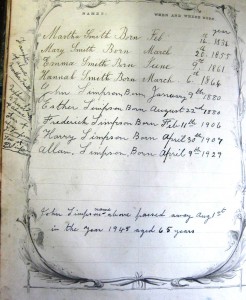 NAMES. WHEN AND WHERE BORN.
years
Martha Smith Born Feb 16th
Mary Smith Born March 5th 1855
Emma Smith Born 9th 1861
Hannah Smith Born March 6th 1864
John Simpson Born January 9th 1880
Esther Simpson Born August 22nd 1880
Frederick Simpson Born Feb 11th 1906
Harry Simpson Born April 30th 1907
Allan Simpson Born April 9th 1929
John Simpson name above passed away Aug 1st
in the Year 1945 aged 65 years